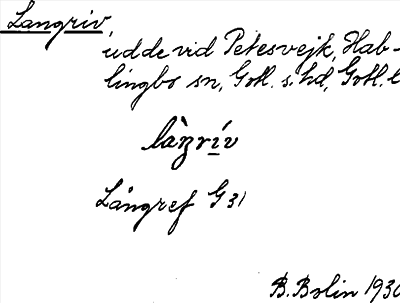 Langriv,
udde vid Petesvejk, Hab-
lingbo sn, Gotl. s. hd, Gotl. l
làŋrív
Långref G 31
B. Bolin 1930